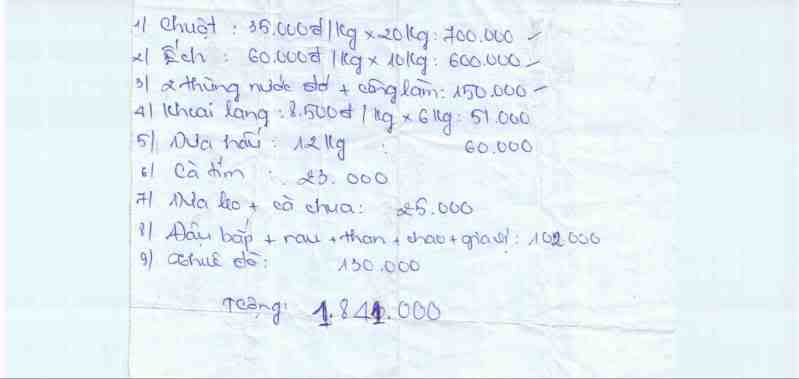 1/ Chuột : 35.000đ/1kg x 20kg: 700.000
2/ Ếch : 60.000đ/1kg x 10kg: 600.000
3/ 2 thùng nước đá + công làm: 150.000
4/ Khoai lang : 8.500đ/1kg x 6kg: 51.000
5/ Dưa hấu : 12kg : 60.000
6/ Cà tím : 23.000
7/ Dưa leo + cà chua: 25.000
8/ Đậu bắp + rau + than + chao + gia vị: 102.000
9/ Thuê đồ: 130.000
Cộng: 1.841.000